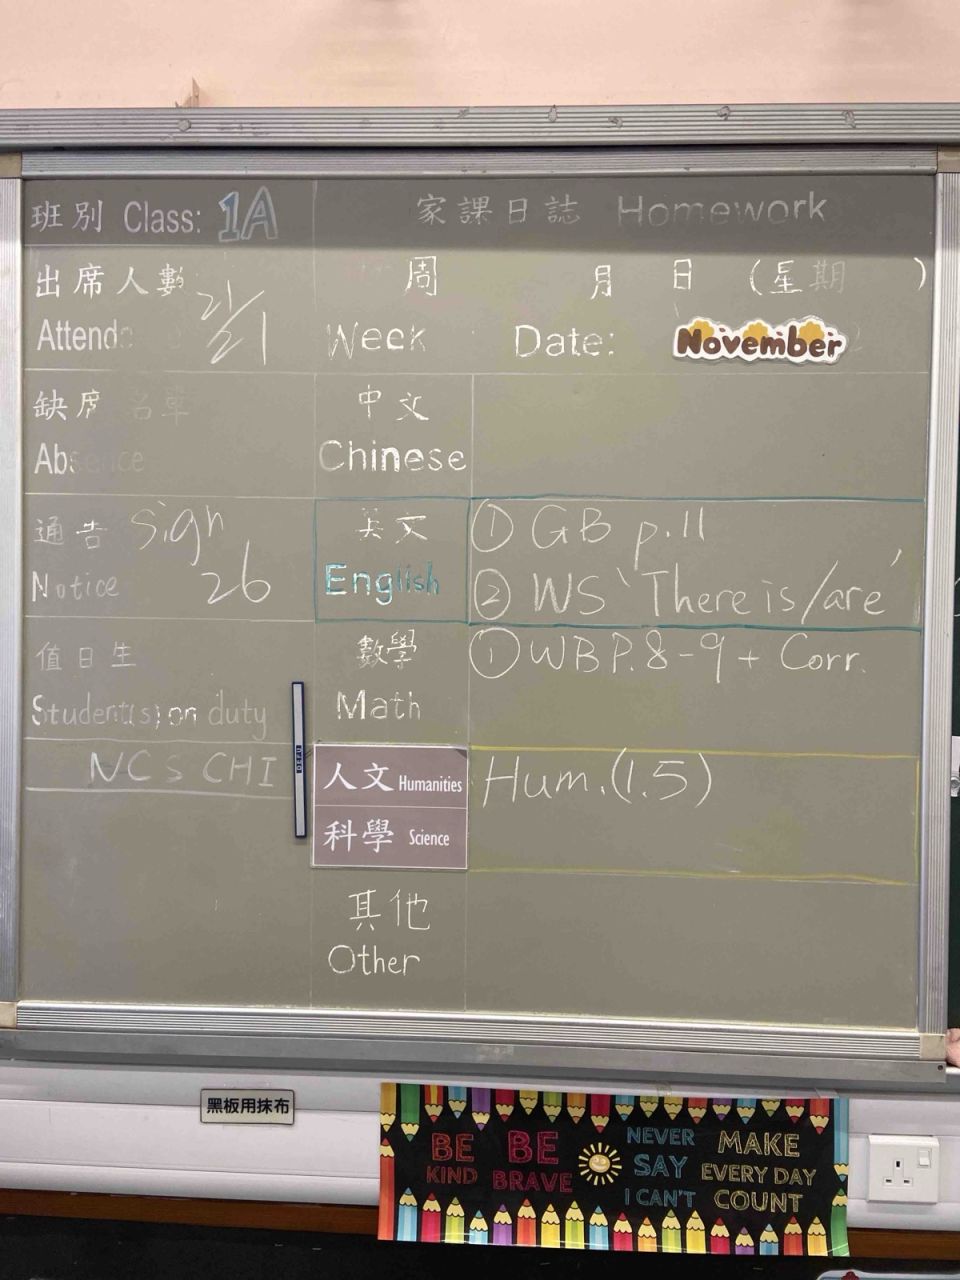 班別 Class: 1A
家課日誌 Homework
出席人數 21/21
Attend
周 月 日 (星期 )
Week Date: November
缺席名單
Absence
中文
Chinese
通告 Sign
Notice 26
英文
English
① GB p.11
② WS 'There is/are'
值日生
Student(s) on duty
數學
Math
① WB P.8-9 + Corr.
NCS CHI
人文 Humanities
科學 Science
Hum.(1.5)
其他
Other
黑板用抹布
BE KIND
BE BRAVE
NEVER SAY I CAN'T
MAKE EVERY DAY COUNT